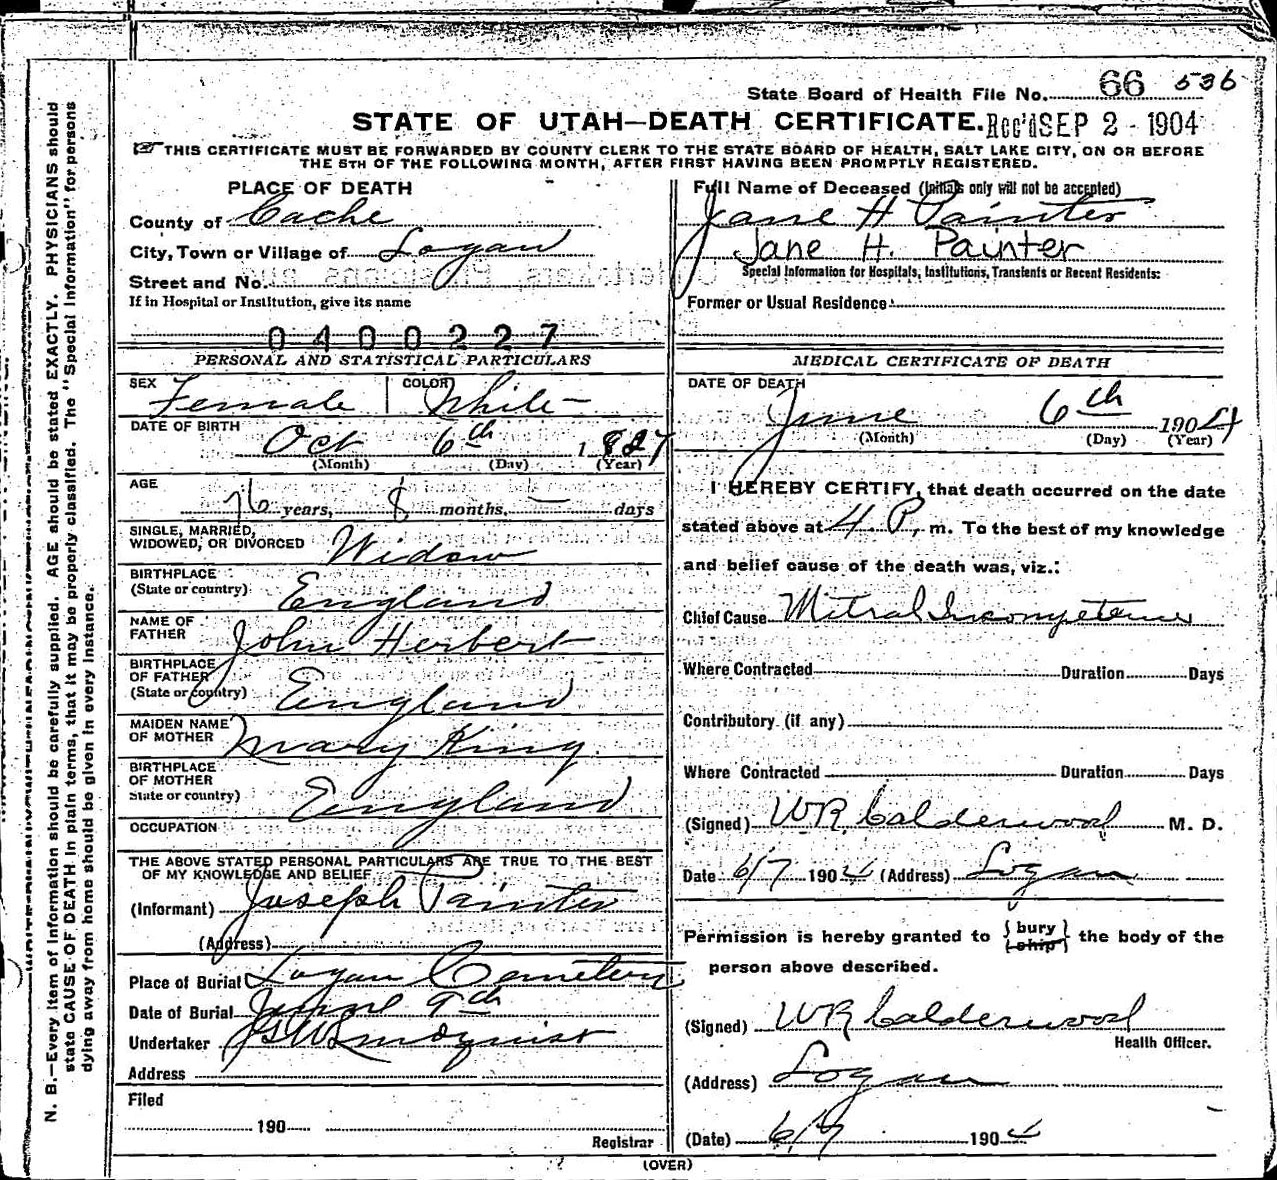 State Board of Health File No. 66 536
STATE OF UTAH—DEATH CERTIFICATE. Rec'd SEP 2 - 1904
THIS CERTIFICATE MUST BE FORWARDED BY COUNTY CLERK TO THE STATE BOARD OF HEALTH, SALT LAKE CITY, ON OR BEFORE
THE 5TH OF THE FOLLOWING MONTH, AFTER FIRST HAVING BEEN PROMPTLY REGISTERED.
N. B.—Every item of information should be carefully supplied. AGE should be stated EXACTLY. PHYSICIANS should
state CAUSE OF DEATH in plain terms, that it may be properly classified. The "Special Information" for persons
dying away from home should be given in every instance.
PLACE OF DEATH
County of Cache
City, Town or Village of Logan
Street and No.
If in Hospital or Institution, give its name
0400227
PERSONAL AND STATISTICAL PARTICULARS
SEX Female COLOR White
DATE OF BIRTH
Oct 6th 1827
(Month) (Day) (Year)
AGE
76 years, 8 months, — days
SINGLE, MARRIED,
WIDOWED, OR DIVORCED Widow
BIRTHPLACE
(State or country) England
NAME OF
FATHER John Herbert
BIRTHPLACE
OF FATHER
(State or country) England
MAIDEN NAME
OF MOTHER Mary King
BIRTHPLACE
OF MOTHER
State or country) England
OCCUPATION
THE ABOVE STATED PERSONAL PARTICULARS ARE TRUE TO THE BEST
OF MY KNOWLEDGE AND BELIEF
(Informant) Joseph Painter
(Address)
Place of Burial Logan Cemetery
Date of Burial June 9th
Undertaker Lindquist
Address
Filed
190
Registrar
Full Name of Deceased (Initials only will not be accepted)
Jane H Painter
Jane H. Painter
Special Information for Hospitals, Institutions, Transients or Recent Residents:
Former or Usual Residence
MEDICAL CERTIFICATE OF DEATH
DATE OF DEATH
June 6th 1904
(Month) (Day) (Year)
I HEREBY CERTIFY, that death occurred on the date
stated above at 4 P. m. To the best of my knowledge
and belief cause of the death was, viz.:
Chief Cause Mitral Incompetence
Where Contracted Duration Days
Contributory (if any)
Where Contracted Duration Days
(Signed) WR Calderwood M. D.
Date 6/7 1904 (Address) Logan
Permission is hereby granted to {bury
ship} the body of the
person above described.
(Signed) WR Calderwood
Health Officer.
(Address) Logan
(Date) 6/7 1904
(OVER)